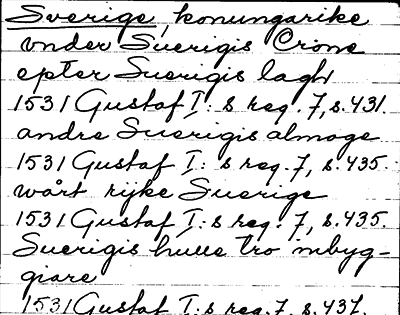 Sverige, konungarike
vnder Suerigis Crone
epter Suerigis lagh
1531 Gustaf I:s reg. 7, s. 431.
andre Suerigis almoge
1531 Gustaf I:s reg. 7, s. 435.
wårt rijke Suerige
1531 Gustaf I:s reg. 7, s. 435.
Suerigis hulle tro inbyg-
giare
1531 Gustaf I:s reg. 7, s. 437.